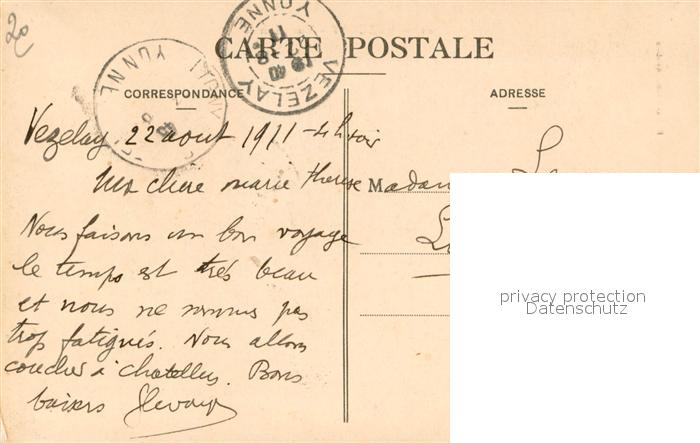 20
CARTE POSTALE
VEZELAY
YONNE
YONNE
CORRESPONDANCE
ADRESSE
Vezelay 22 aout 1911 - 4h soir
Ma chere marie therese
Madam
Nous faisons un bon voyage
le temps est très beau
et nous ne sommes pas
trop fatigués. Nous allons
coucher à Chatellus. Bons
baisers
privacy protection
Datenschutz